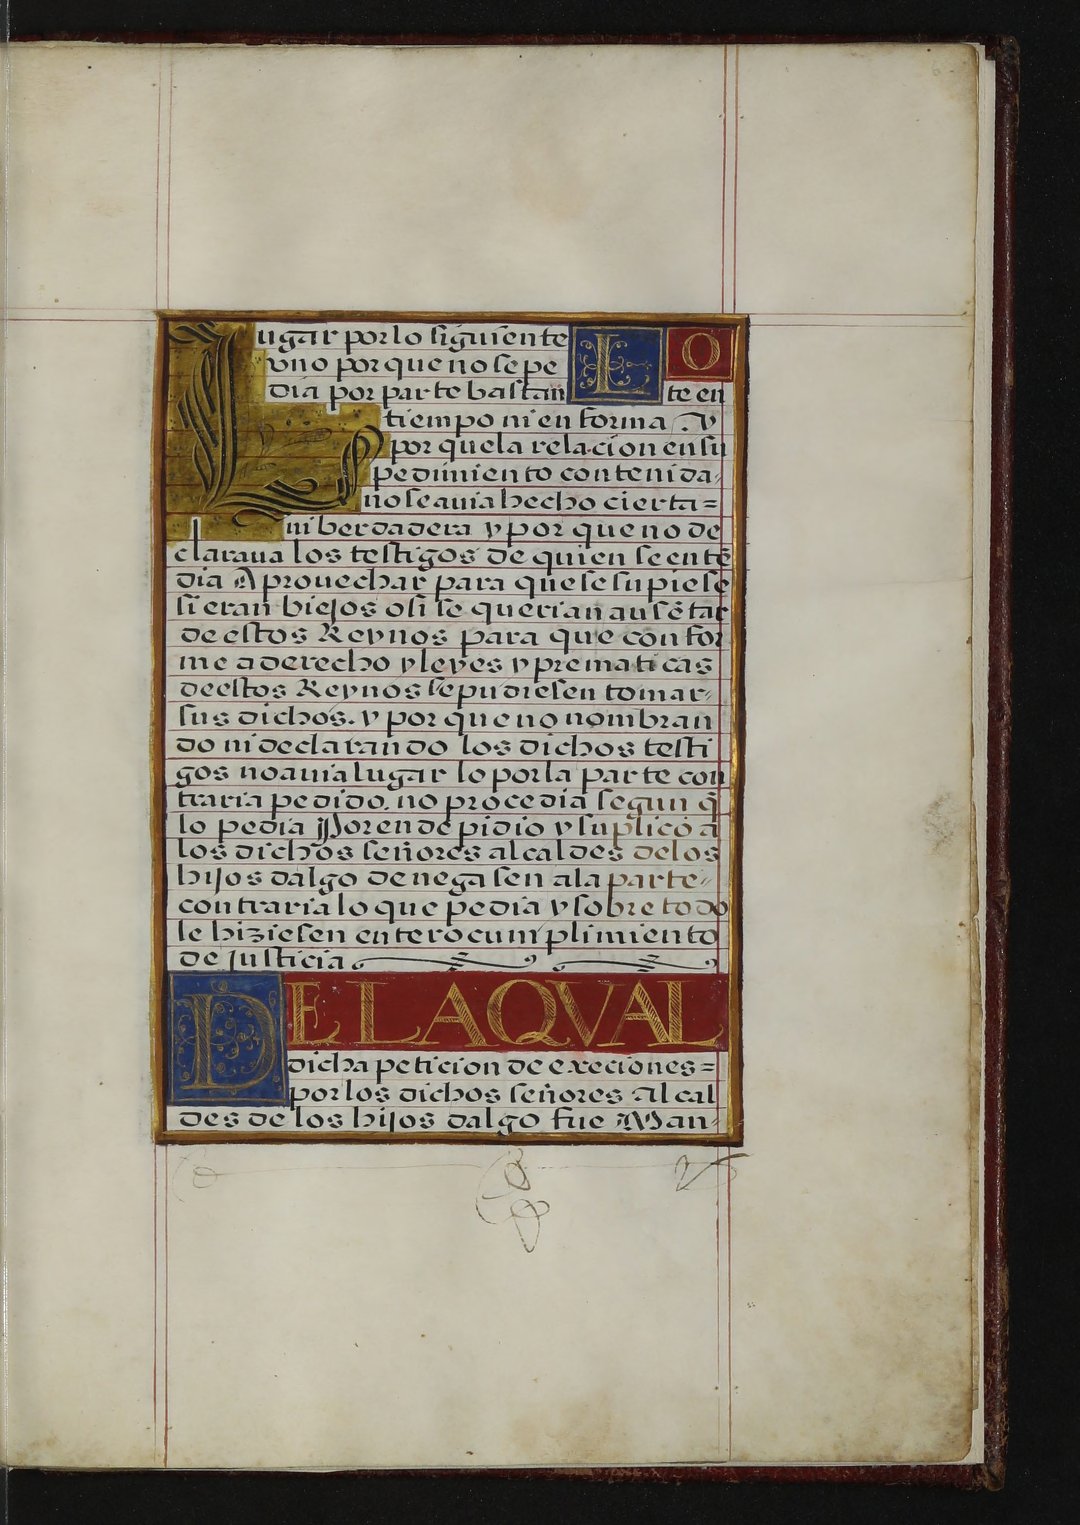 Lugar por lo siguiente LO
vno por que no se pe
dia por parte bastan te en
tiempo ni en forma . y
por que la relacion en su
pedimiento contenida
no se auia hecho cierta=
ni berdadera y por que no de
claraua los testigos de quien se entē
dia Aprouechar para que se supiese
si eran biejos o si se querian ausētar
de estos Reynos para que confor
me a derecho y leyes y prematicas
de estos Reynos se pudiesen tomar
sus dichos. y por que no nombran
do ni declarando los dichos testi
gos no auia lugar lo por la parte con
traria pedido. no procedia segun q̄
lo pedia Por ende pidio y suplico a
los dichos señores alcaldes de los
hijos dalgo denegasen a la parte
contraria lo que pedia y sobre todo
le hiziesen entero cumplimiento
de justicia
DE LA QVAL
dicha peticion de execiones=
por los dichos señores Alcal
des de los hijos dalgo fue Man-